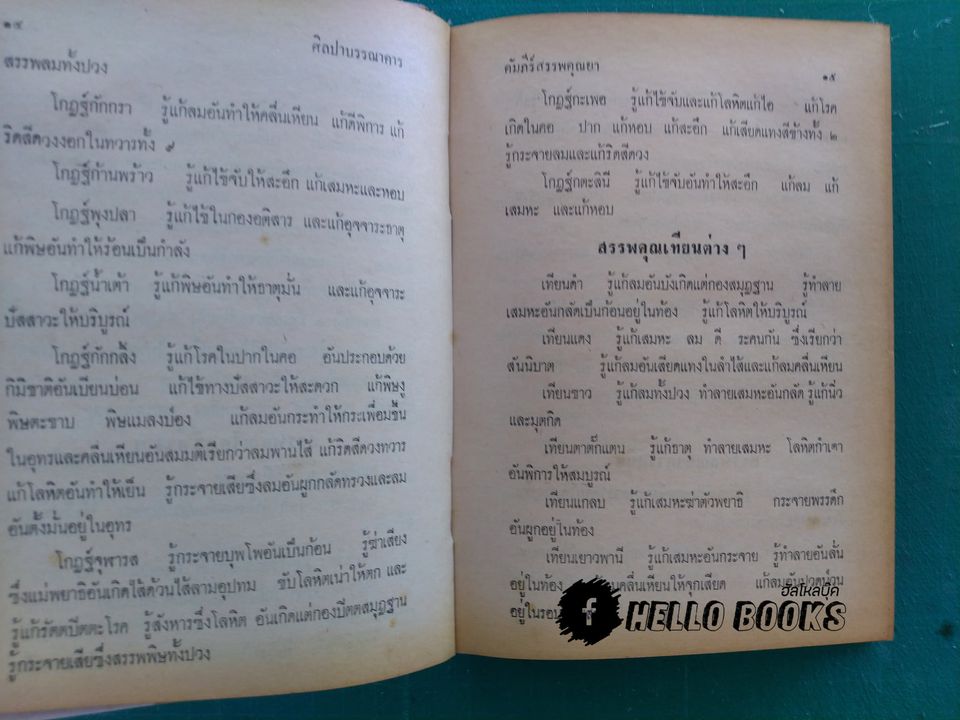 ๑๔
ศิลปาบรรณาคาร
สรรพลมทั้งปวง
โกฏฐ์กักกรา รู้แก้ลมอันทำให้คลื่นเหียน แก้ดีพิการ แก้
ริดสีดวงงอกในทวารทั้ง ๙
โกฏฐ์ก้านพร้าว รู้แก้ไข้จับให้สะอึก แก้เสมหะและหอบ
โกฏฐ์พุงปลา รู้แก้ไข้ในกองอติสาร และแก้อุจจาระธาตุ
แก้พิษอันทำให้ร้อนเป็นกำลัง
โกฏฐ์น้ำเต้า รู้แก้พิษอันทำให้ธาตุมั่น และแก้อุจจาระ
ปัสสาวะให้บริบูรณ์
โกฏฐ์กักกลิ้ง รู้แก้โรคในปากในคอ อันประกอบด้วย
กิมิชาติอันเบียนบ่อน แก้ไข้ทางปัสสาวะให้สะดวก แก้พิษงู
พิษตะขาบ พิษแมลงป่อง แก้ลมอันกระทำให้กระเพื่อมขึ้น
ในอุทรและคลื่นเหียนอันสมมติเรียกว่าลมพานไส้ แก้ริดสีดวงทวาร
แก้โลหิตอันทำให้เย็น รู้กระจายเสียซึ่งลมอันผูกกลัดทรวงและลม
อันตั้งมั่นอยู่ในอุทร
โกฏฐ์จุฬารส รู้กระจายบุพโพอันเป็นก้อน รู้ฆ่าเสียง
ซึ่งแม่พยาธิอันเกิดไส้ด้วนไส้ลามอุปทม ขับโลหิตเน่าให้ตก และ
รู้แก้รัตตปิตตะโรค รู้สังหารซึ่งโลหิต อันเกิดแต่กองปิตตสมุฏฐาน
รู้กระจายเสียซึ่งสรรพพิษทั้งปวง
คัมภีร์สรรพคุณยา
๑๕
โกฏฐ์กะเพอ รู้แก้ไข้จับและแก้โลหิตแก้ไอ แก้โรค
เกิดในคอ ปาก แก้หอบ แก้สะอึก แก้เสียดแทงสีข้างทั้ง ๒
รู้กระจายลมและแก้ริดสีดวง
โกฏฐ์กตะสินี รู้แก้ไข้จับอันทำให้สะอึก แก้ลม แก้
เสมหะ และแก้หอบ
สรรพคุณเทียนต่าง ๆ
เทียนดำ รู้แก้ลมอันบังเกิดแต่กองสมุฏฐาน รู้ทำลาย
เสมหะอันกลัดเป็นก้อนอยู่ในท้อง รู้แก้โลหิตให้บริบูรณ์
เทียนแดง รู้แก้เสมหะ ลม ดี ระคนกัน ซึ่งเรียกว่า
สันนิบาต รู้แก้ลมอันเสียดแทงในลำไส้และแก้ลมคลื่นเหียน
เทียนขาว รู้แก้ลมทั้งปวง ทำลายเสมหะอันกลัด รู้แก้นิ่ว
และมุตกิด
เทียนตาตั๊กแตน รู้แก้ธาตุ ทำลายเสมหะ โลหิตกำเดา
อันพิการให้สมบูรณ์
เทียนแกลบ รู้แก้เสมหะฆ่าตัวพยาธิ กระจายพรรดึก
อันผูกอยู่ในท้อง
เทียนเยาวพานี รู้แก้เสมหะอันกระจาย รู้ทำลายอันลั่น
อยู่ในท้อง คลื่นเหียนให้จุกเสียด แก้ลมอันปวดป่วน
อยู่ในรอบ
ฮัลโหลบุ๊ค
f HELLO BOOKS